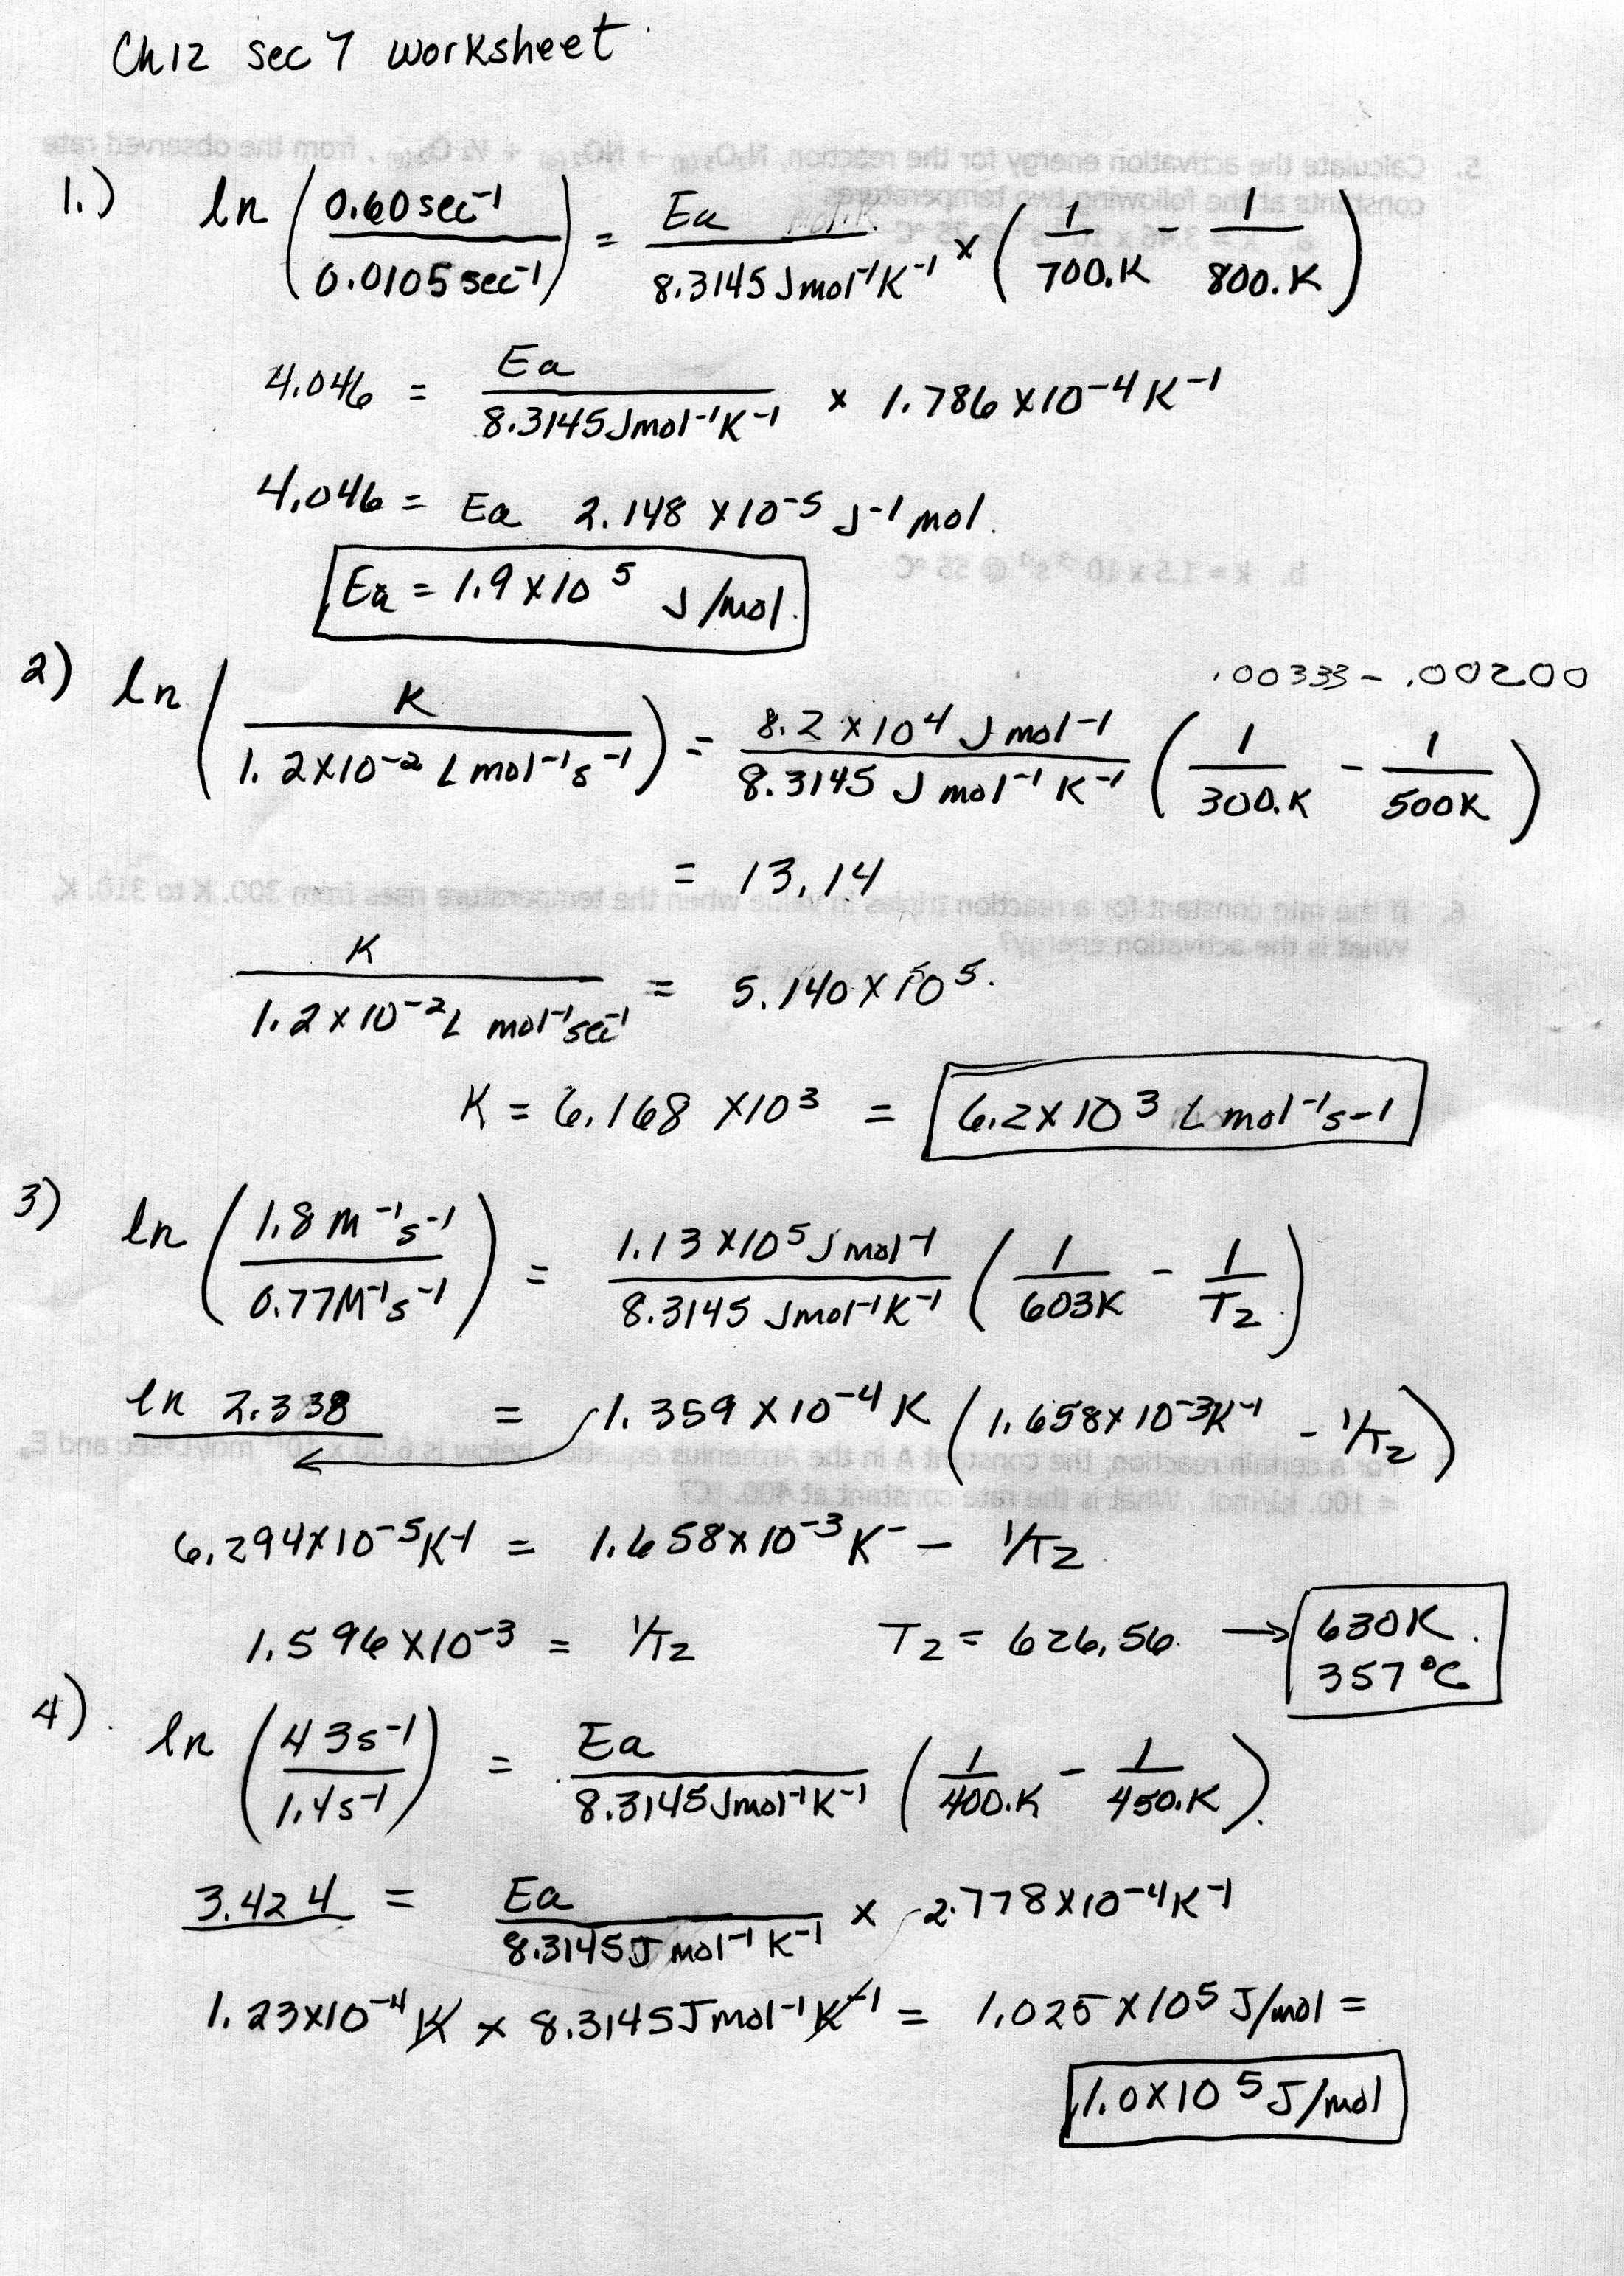 Ch 12 sec 7 worksheet
1.) ln (0.60 sec⁻¹ / 0.0105 sec⁻¹) = Ea / 8.3145 Jmol⁻¹K⁻¹ × (1 / 700.K - 1 / 800.K)
4.046 = Ea / 8.3145 Jmol⁻¹K⁻¹ × 1.786 x10⁻⁴ K⁻¹
4.046 = Ea 2.148 x10⁻⁵ J⁻¹ mol.
Ea = 1.9 x 10⁵ J/mol.
2) ln (K / 1.2x10⁻² L mol⁻¹s⁻¹) = 8.2 x 10⁴ J mol⁻¹ / 8.3145 J mol⁻¹ K⁻¹ (1 / 300.K - 1 / 500K)
.00333 - .00200
= 13.14
K / 1.2 x 10⁻² L mol⁻¹sec⁻¹ = 5.140 x 10⁵.
K = 6.168 x10³ = 6.2x 10³ L mol⁻¹s⁻¹
3) ln (1.8 M⁻¹s⁻¹ / 0.77M⁻¹s⁻¹) = 1.13 x10⁵ J mol⁻¹ / 8.3145 Jmol⁻¹K⁻¹ (1 / 603K - 1 / T₂)
ln 2.338 = 1.359 x 10⁻⁴ K (1.658x 10⁻³K⁻¹ - 1/T₂)
6.294x10⁻⁵K⁻¹ = 1.658x10⁻³ K⁻ - 1/T₂
1.596 x10⁻³ = 1/T₂ T₂ = 626.56. → 630K.
357°C
4). ln (43s⁻¹ / 1.4s⁻¹) = Ea / 8.3145 Jmol⁻¹K⁻¹ (1 / 400.K - 1 / 450.K).
3.424 = Ea / 8.3145 J mol⁻¹ K⁻¹ × 2.778x10⁻⁴K⁻¹
1.23x10⁻⁴ K x 8.3145 J mol⁻¹ K⁻¹ = 1.025 x10⁵ J/mol =
1.0x10⁵ J/mol